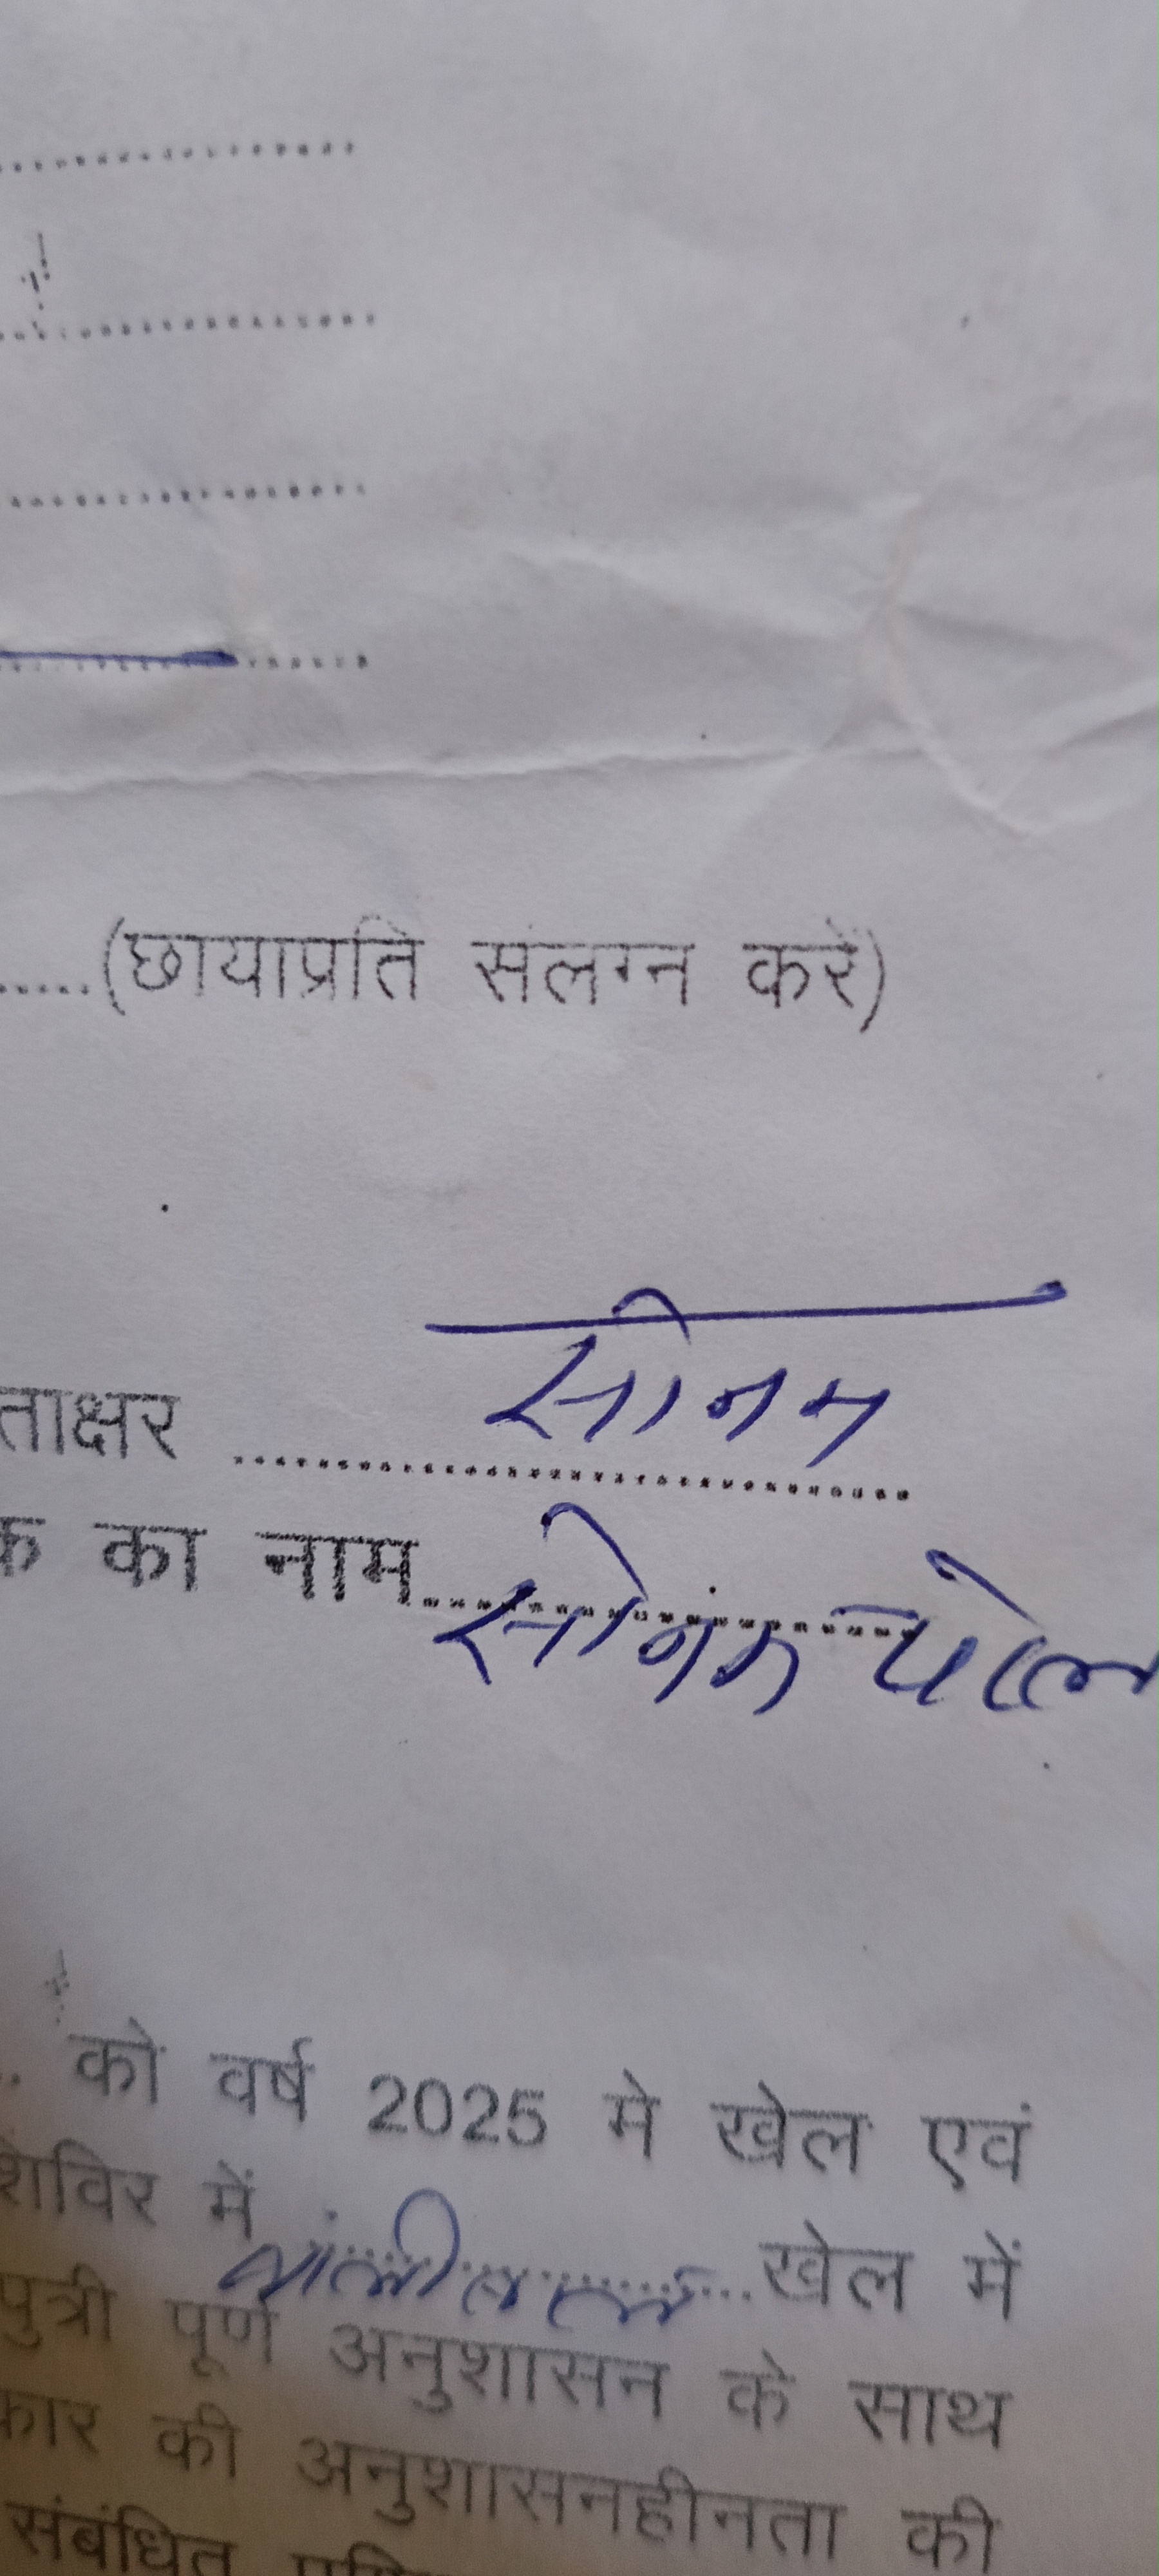 (छायाप्रति संलग्न करें)
सोनम
ताक्षर
क का नाम सोनम
को वर्ष 2025 मे खेल एवं
शिविर में वॉलीबाल खेल में
पुत्री पूर्ण अनुशासन के साथ
कार की अनुशासनहीनता की
संबंधित